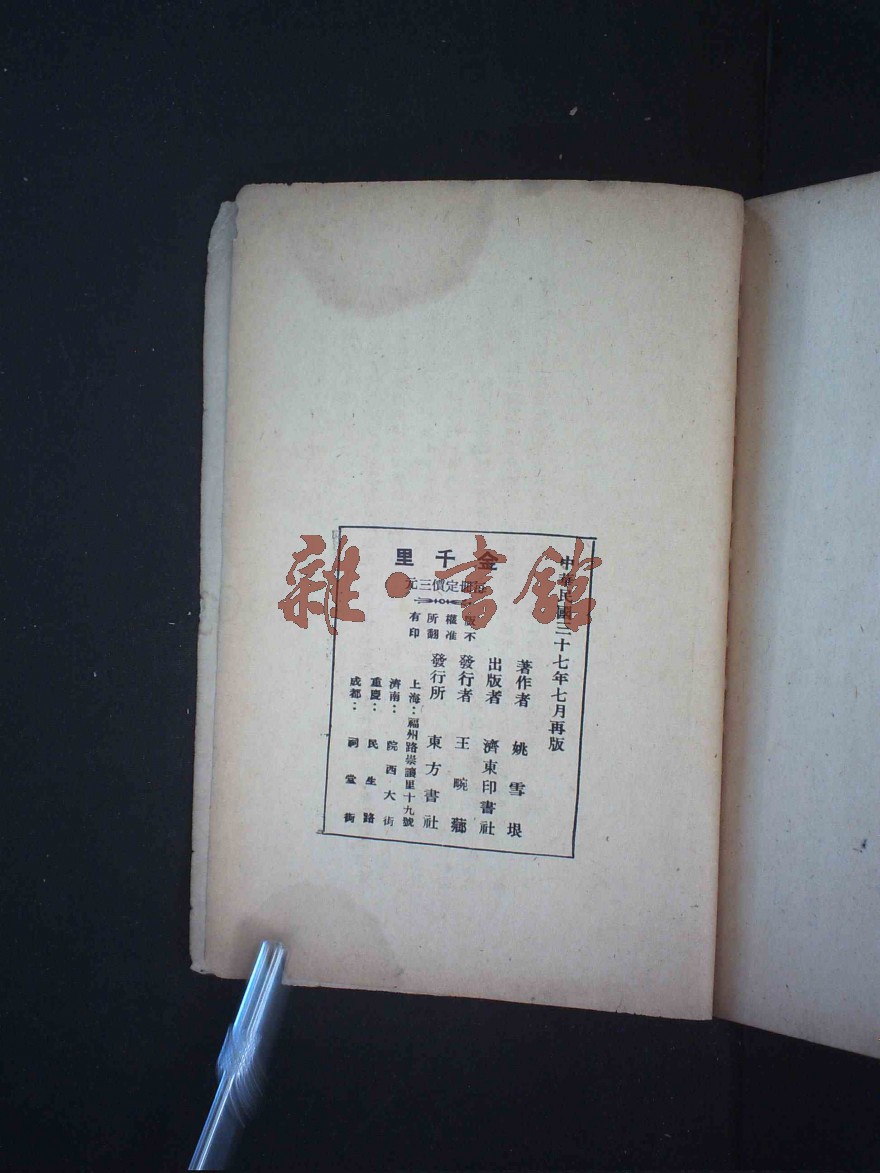 金千里
每冊定價三元
版權所有
不准翻印
中華民國三十七年七月再版
著作者 姚雪垠
出版者 濟東印書社
發行者 王畹薌
發行所 東方書社
上海：福州路崇讓里十九號
濟南：院西大街
重慶：民生路
成都：祠堂街
雜·書館